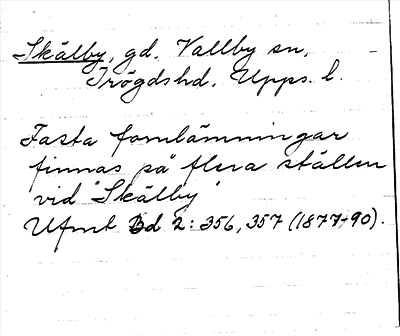 Skälby, gd. Vallby sn,
Trögds hd. Upps. l.
Fasta fornlämningar
finnas på flera ställen
vid "Skälby"
Ufmt Bd 2: 356, 357 (1877-90).